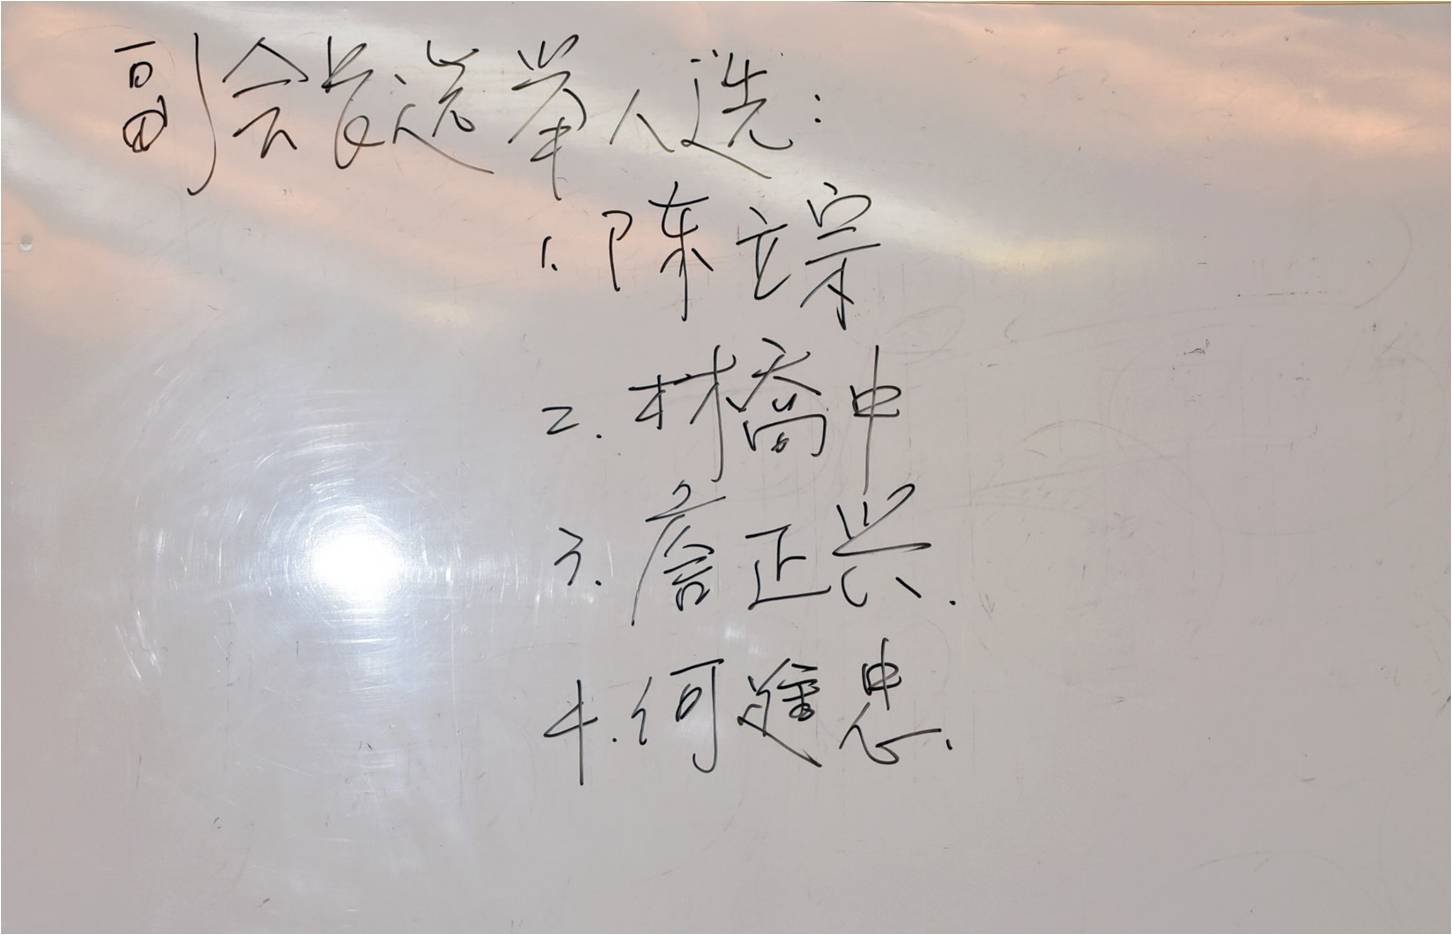 副会长选举人选:
1. 陈立宗
2. 林喬中
3. 詹正兴.
4. 何建忠.